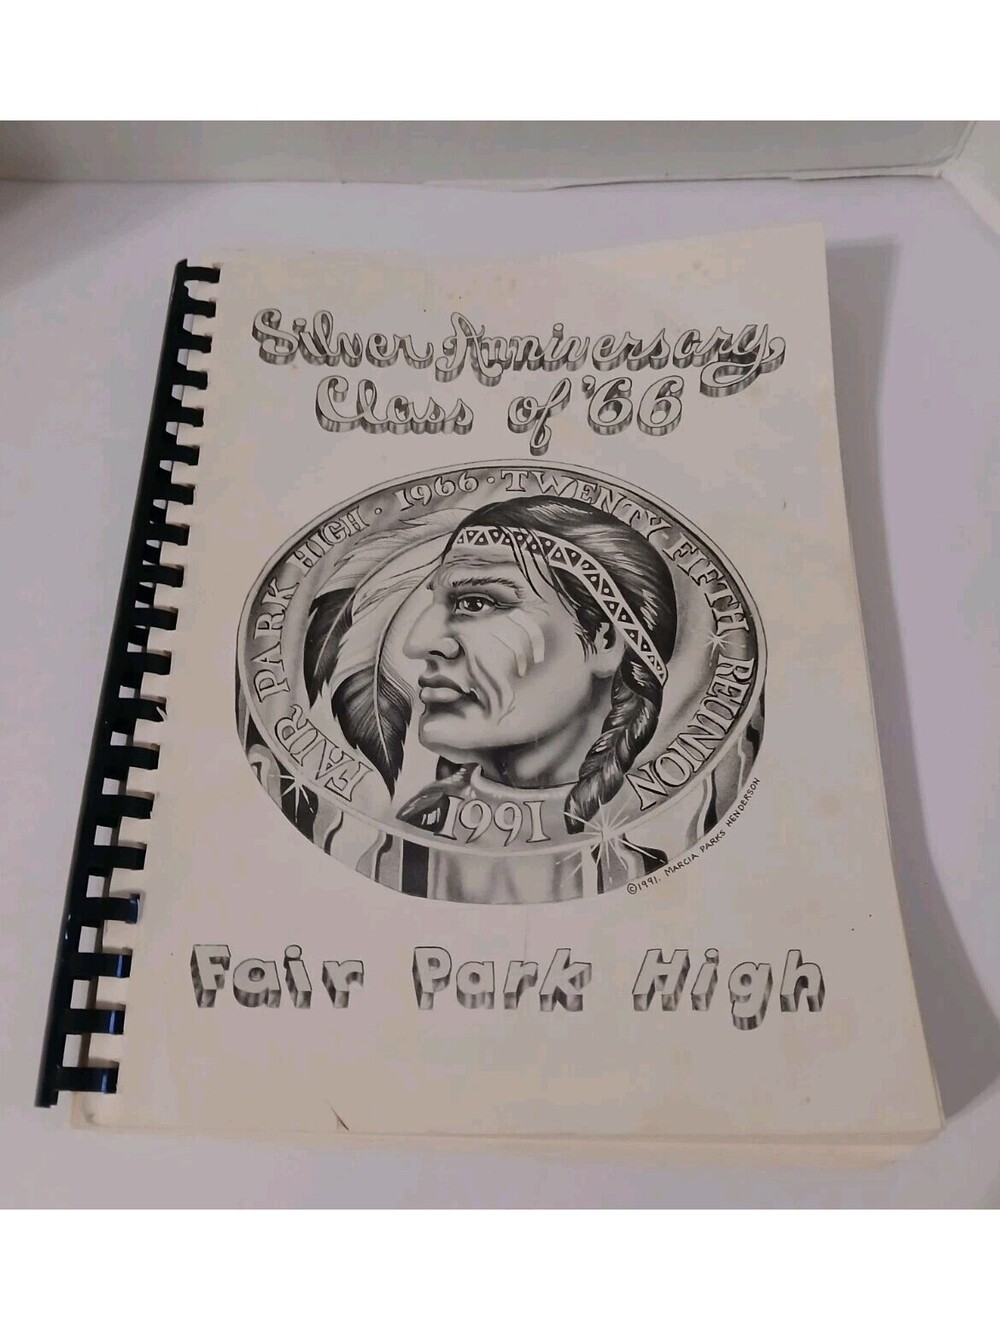 Silver Anniversary
Class of '66
FAIR PARK HIGH · 1966 · TWENTY FIFTH REUNION
1991
©1991. MARCIA PARKS HENDERSON
Fair Park High